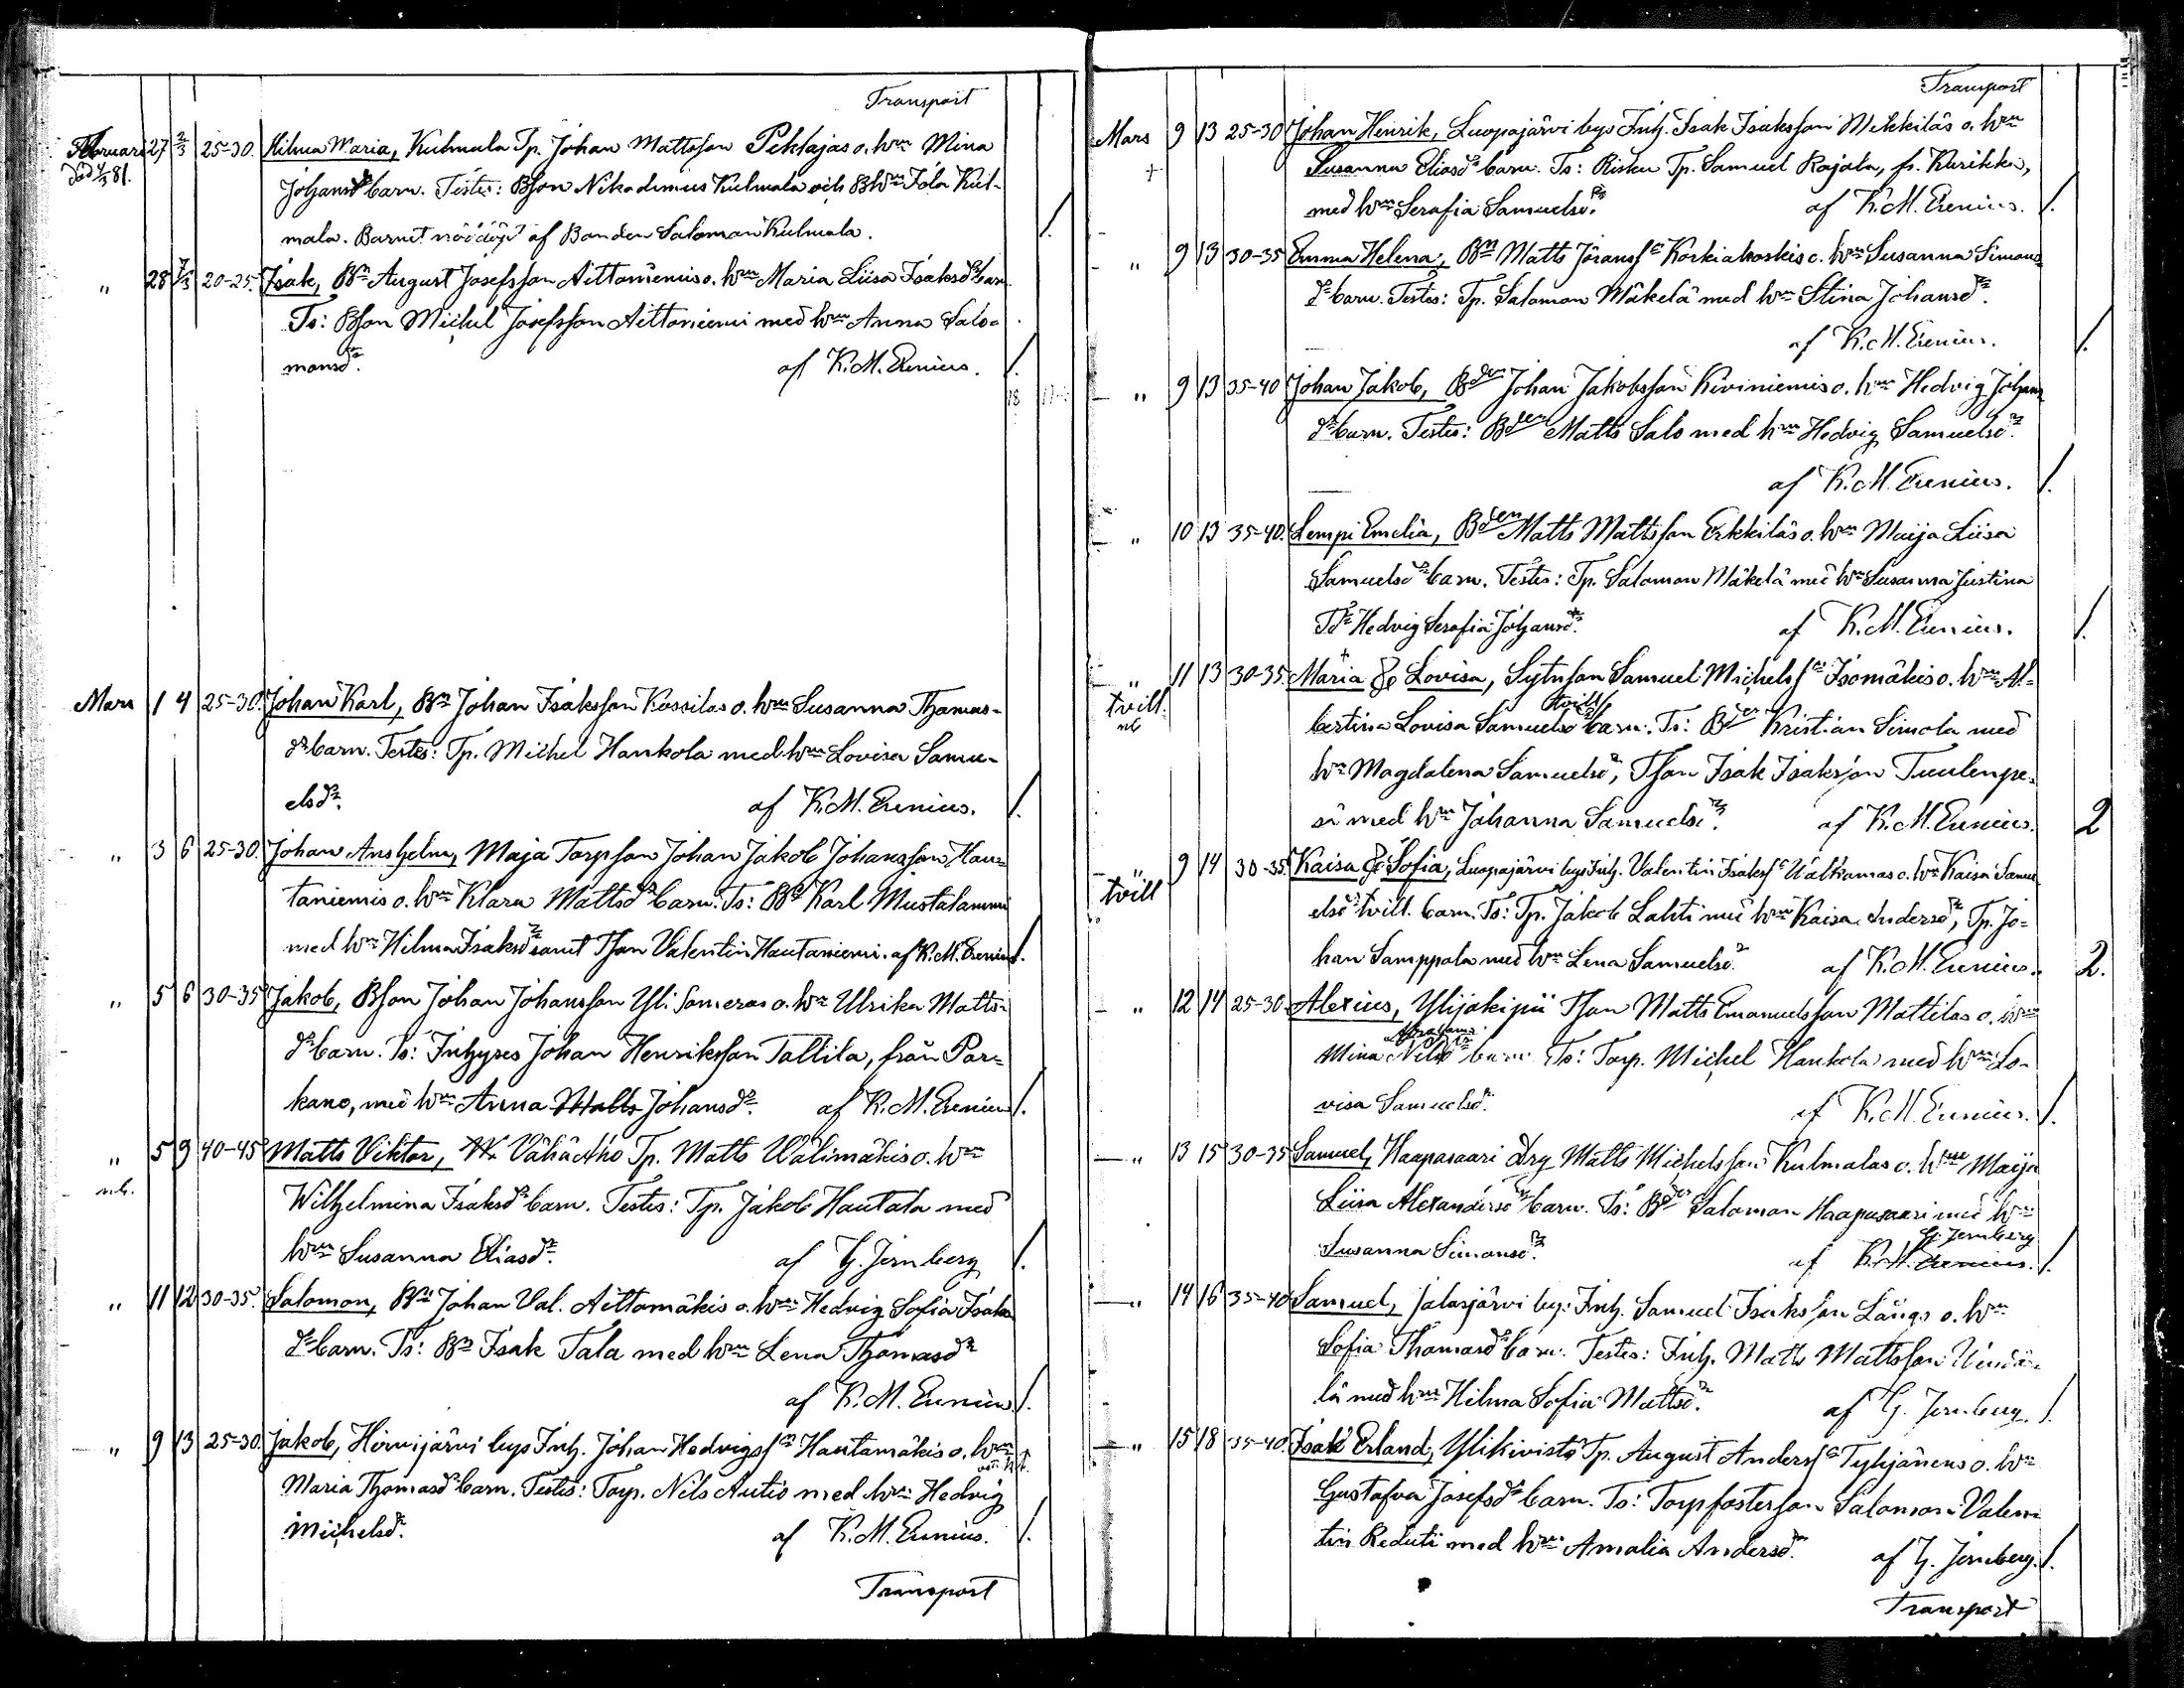 Transport
Februari 27 2/3 25-30. Hilma Maria, Kulmala Tp. Johan Mattsson Pehtajas o. hm Mina
död 4/3 81.
Johansdr barn. Testes: Bson Nikodemus Kulmala och Bhm Fola Kul-
mala. Barnet nöddöpt af Bonden Salomon Kulmala. /.
" 28 7/3 20-25. Isak, Bn August Josefsson Aittoniemis o. hm Maria Liisa Isaksdr barn.
Ts: Bson Michel Josefsson Aittoniemi med hm Anna Salo-
monsdr. af K. M. Erenius. /.
18
Mars 1 4 25-30. Johan Karl, Bn Johan Isaksson Kossilas o. hm Susanna Thomas-
dr barn. Testes: Tp. Michel Hankola med hm Lovisa Samu-
elsdr. af K. M. Erenius. /.
" 3 6 25-30. Johan Anshelm, Maja Torpson Johan Jakob Johansson Hau-
taniemis o. hm Klara Mattsdr barn. Ts: Bn Karl Mustalammi
med hm Hilma Isaksdr samt Tson Valentin Hautaniemi. af K. M. Erenius /.
" 5 6 30-35 Jakob, Bson Johan Johansson Yli Someros o. hm Ulrika Matts-
dr barn. Ts: Inhyses Johan Henriksson Tallila, från Par-
kano, med hm Anna Matts Johansdr. af K. M. Erenius /.
" 5 9 40-45 Matts Viktor, Vähä Aho Tp. Matts Välimäkis o. hm
nb.
Wilhelmina Isaksdr barn. Testes: Tp. Jakob Hautala med
hm Susanna Eliasdr. af G. Jernberg /.
" 11 12 30-35. Salomon, Bn Johan Val. Aittomäkis o. hm Hedvig Sofia Isaks
dr barn. Ts: Bn Isak Tala med hm Lena Thomasdr
af K. M. Erenius. /.
" 9 13 25-30. Jakob, Hirvijärvi bys Inh. Johan Hedvigsson Hautamäkis o. hm
Maria Thomasdr barn. Testes: Torp. Nils Autio med hm Hedvig
Michelsdr. af K. M. Erenius. /.
Transport
Transport
Mars 9 13 25-30 Johan Henrik, Luopajärvi bys Inh. Isak Isaksson Mikkiläs o. hm
+ Susanna Eliasdr barn. Ts: Risku Tp. Samuel Rajala, fr. Kurikka,
med hm Serafia Samuelsdr. af K. M. Erenius. /.
" 9 13 30-35 Emma Helena, Bn Matts Göranss Koskiakoskis o. hm Susanna Simons
dr barn. Testes: Tp. Salomon Mäkelä med hm Stina Johansdr.
af K. M. Erenius. /.
" 9 13 35-40 Johan Jakob, Bden Johan Jakobsson Kiviniemis o. hm Hedvig Johans
dr barn. Testes: Bden Matts Salo med hm Hedvig Samuelsdr.
af K. M. Erenius. /.
" 10 13 35-40. Lempi Emelia, Bden Matts Mattsson Erkkiläs o. hm Maija Liisa
Samuelsdr barn. Testes: Tp. Salomon Mäkelä med hm Susanna Justina
Tdr Hedvig Serafia Johansdr. af K. M. Erenius. /.
" 11 13 30-35 Maria & Lovisa, Sytnson Samuel Michelss Isomäkis o. hm Al-
tvill. nb
bertina Lovisa Samuelsdr tvill. barn. Ts: Bden Kristian Simola med
hm Magdalena Samuelsdr, Tson Isak Isaksson Tuulenpe-
sä med hm Johanna Samuelsdr. af K. M. Erenius. 2
" 9 14 30-35. Kaisa & Sofia, Luopajärvi bys Inh. Valentin Isakss Wälkamas o. hm Kaisa Samu
tvill
elsdr tvill. barn. Ts: Tp. Jakob Lahti med hm Kaisa Andersdr, Tp. Jo-
han Samppala med hm Lena Samuelsdr. af K. M. Erenius. 2.
" 12 14 25-30 Alexius, Ylijakipii Tson Matts Emanuelsson Mattilas o. hm
Mina Nilsdr Abrahams barn. Ts: Torp. Michel Hankola med hm Lo-
visa Samuelsdr. af K. M. Erenius. /.
" 13 15 30-35 Samuel, Haapasaari Drg Matts Michelsson Kulmalas o. hm Maija
Liisa Alexandersdr barn. Ts: Bden Salomon Haapasaari med hm
Susanna Simonsdr. af K. M. Erenius. G. Jernberg /.
" 14 16 35-40 Samuel, Jalasjärvi by: Inh. Samuel Isaksson Långs o. hm
Sofia Thomasdr barn. Testes: Inh. Matts Mattsson
lä med hm Hilma Sofia Mattsdr. af G. Jernberg. /.
" 15 18 35-40. Isak Erland, Ylikivistö Tp. August Anderss Tyhjänens o. hm
Gustafva Josefsdr barn. Ts: Torpfosterson Salomon Valen-
tin Reduti med hm Amalia Andersdr. af G. Jernberg. /.
Transport